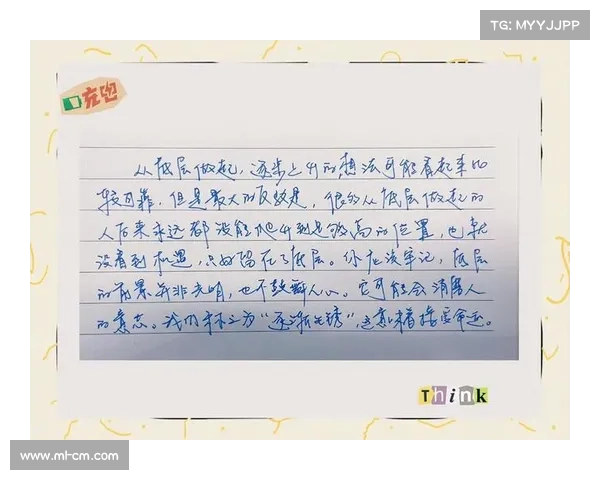 TG: MYYJJPP
充电
从底层做起，逐步上升的想法可能看起来比
较可靠，但是最大的反效是，很多从底层做起的
人后来永远都没能爬升到足够高的位置，也就
没看到机遇，只好留在了底层。你应该牢记，底层
的前景并非光明，也不鼓舞人心。它可能会消磨人
的意志。我们称之为“逐渐生锈”，这意味着接受命运。
Think
www.ml-cm.com